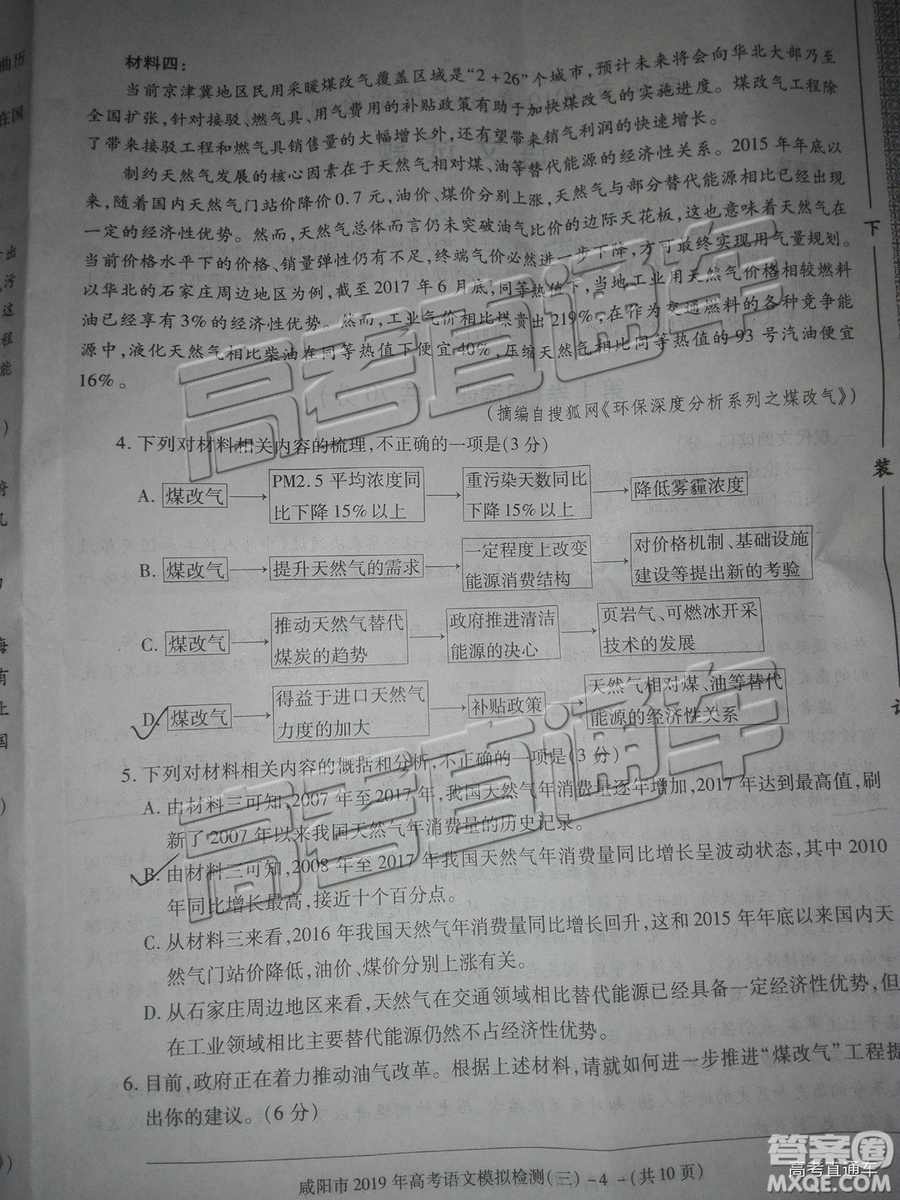 曲历
在国
材料四:
当前京津冀地区民用采暖煤改气覆盖区域是“2+26”个城市,预计未来将会向华北大部乃至
全国扩张,针对接驳、燃气具、用气费用的补贴政策有助于加快煤改气的实施进度。煤改气工程除
了带来接驳工程和燃气具销售量的大幅增长外,还有望带来销气利润的快速增长。
制约天然气发展的核心因素在于天然气相对煤、油等替代能源的经济性关系。2015年年底以
来,随着国内天然气门站价降价0.7元,油价、煤价分别上涨,天然气与部分替代能源相比已经出现
一定的经济性优势。然而,天然气总体而言仍未突破油气比价的边际天花板,这也意味着天然气在
当前价格水平下的价格、销量弹性仍有不足,终端气价必然进一步下降,方可最终实现用气量规划。
以华北的石家庄周边地区为例,截至2017年6月底,同等热值下,当地工业用天然气价格相较燃料
油已经享有3%的经济性优势。然而,工业气价相比煤贵出219%;在作为交通燃料的各种竞争能
源中,液化天然气相比柴油在同等热值下便宜40%,压缩天然气相比同等热值的93号汽油便宜
16%。
(摘编自搜狐网《环保深度分析系列之煤改气》)
4.下列对材料相关内容的梳理,不正确的一项是(3分)
A. 煤改气 → PM2.5平均浓度同比下降15%以上 → 重污染天数同比下降15%以上 → 降低雾霾浓度
B. 煤改气 → 提升天然气的需求 → 一定程度上改变能源消费结构 → 对价格机制、基础设施建设等提出新的考验
C. 煤改气 → 推动天然气替代煤炭的趋势 → 政府推进清洁能源的决心 → 页岩气、可燃冰开采技术的发展
D. 煤改气 → 得益于进口天然气力度的加大 → 补贴政策 → 天然气相对煤、油等替代能源的经济性关系
5.下列对材料相关内容的概括和分析,不正确的一项是(3分)
A.由材料三可知,2007年至2017年,我国天然气年消费量逐年增加,2017年达到最高值,刷
新了2007年以来我国天然气年消费量的历史记录。
B.由材料三可知,2008年至2017年我国天然气年消费量同比增长呈波动状态,其中2010
年同比增长最高,接近十个百分点。
C.从材料三来看,2016年我国天然气年消费量同比增长回升,这和2015年年底以来国内天
然气门站价降低,油价、煤价分别上涨有关。
D.从石家庄周边地区来看,天然气在交通领域相比替代能源已经具备一定经济性优势,但
在工业领域相比主要替代能源仍然不占经济性优势。
6.目前,政府正在着力推动油气改革。根据上述材料,请就如何进一步推进“煤改气”工程提
出你的建议。(6分)
咸阳市2019年高考语文模拟检测(三)-4-(共10页)
下
装
订
高考直通车
高考直通车
答案圈
高考直通车
MXQE.COM